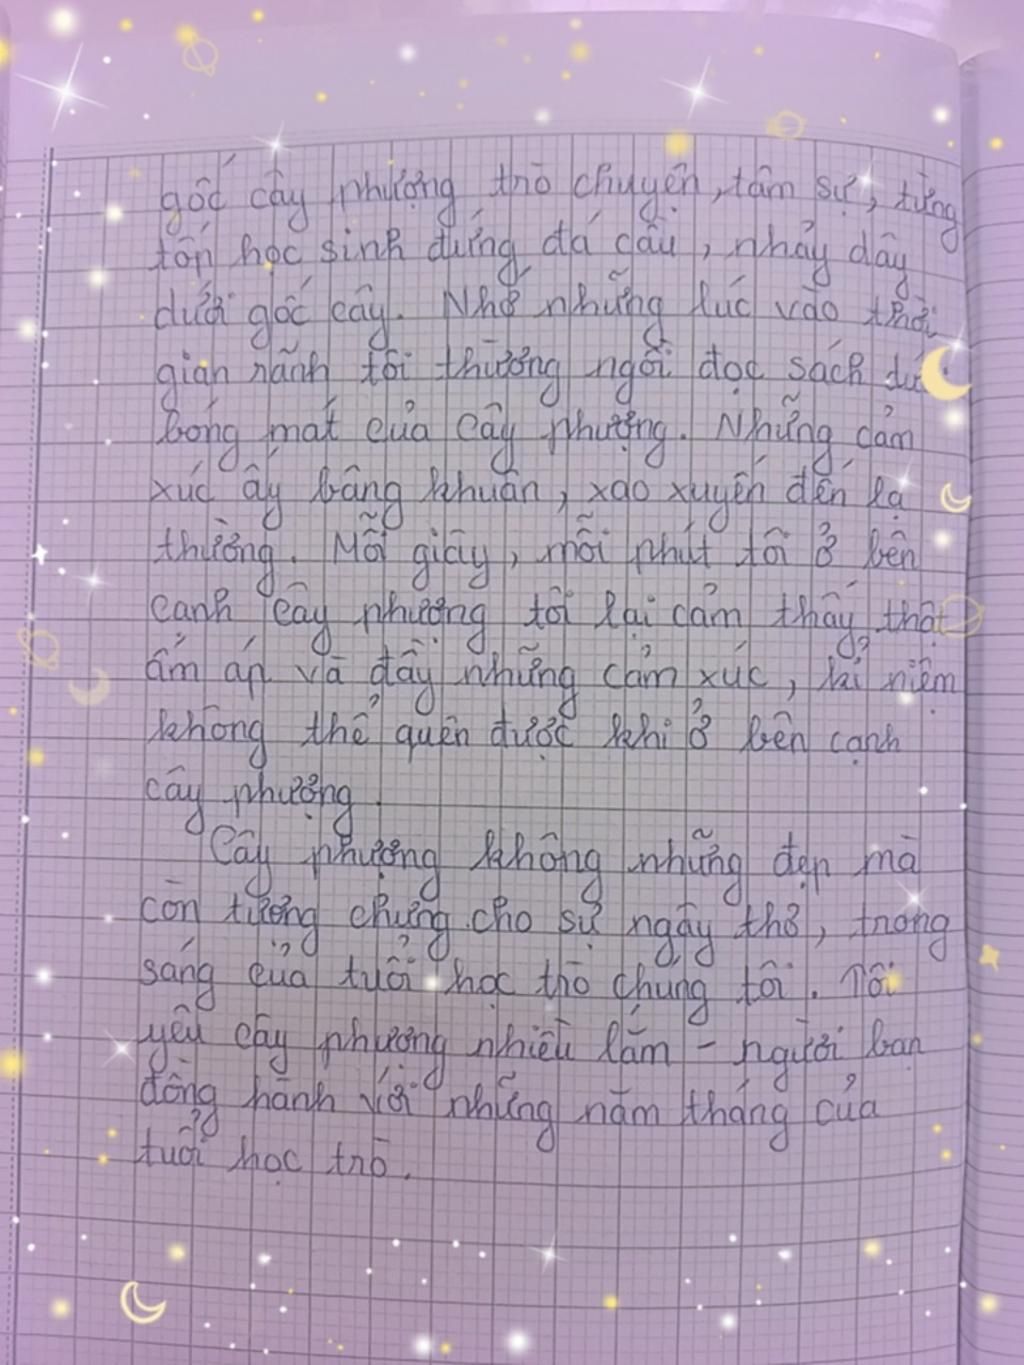 gốc cây phượng trò chuyện, tâm sự, từng
tốp học sinh đứng đá cầu, nhảy dây
dưới gốc cây. Nhớ những lúc vào thời
gian rãnh tôi thường ngồi đọc sách
bóng mát của cây phượng. Những cảm
xúc ấy bâng khuân, xao xuyến đến lạ
thường. Mỗi giây, mỗi phút tôi ở bên
cạnh cây phượng tôi lại cảm thấy thật
ấm áp và đầy những cảm xúc, kỉ niệm
không thể quên được khi ở bên cạnh
cây phượng.
Cây phượng không những đẹp mà
còn tượng chưng cho sự ngây thơ, trong
sáng của tuổi học trò chúng tôi. Tôi
yêu cây phượng nhiều lắm - người bạn
đồng hành với những năm tháng của
tuổi học trò.